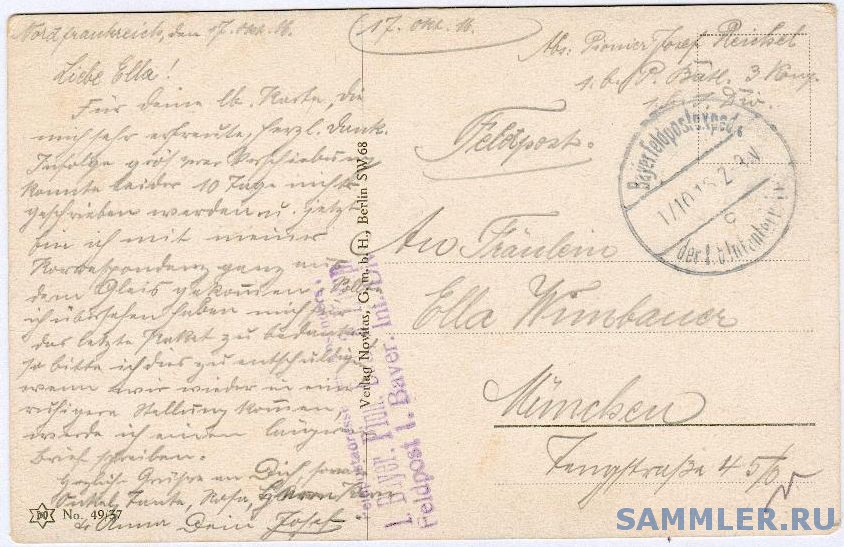 Nordfrankreich, den 17. Okt. 16.
Liebe Ella!
Für deine lb. Karte, die
mich sehr erfreute, herzl. Dank.
Infolge größerer Verschiebung
konnte leider 10 Tage nichts
geschrieben werden u. jetzt
bin ich mit meiner
Korrespondenz ganz aus
dem Gleis gekommen. Sollte
ich übersehen haben mich für
das letzte Paket zu bedanken
so bitte ich dies zu entschuldigen
wenn wir wieder in eine
ruhigere Stellung kommen,
werde ich einen längeren
Brief schreiben.
Herzliche Grüsse an Dich sowie
Onkel, Tante, Rosa, Herrn
u. Anna Dein Josef.
No. 49/37
Verlag Novitas, G. m. b. H., Berlin SW 68
1. Bayer. Pion.
Feldpost 1. Bayer. Inf. Div.
17. Okt. 16.
Abs: Pionier Josef Reichel
1. b. P. Batl. 3 Komp.
1. b. Div.
Feldpost.
Bayer. Feldpostexped.
der 1. Infanterie
An Fräulein
Ella Wimbauer
München
Zengstraße 45/0
SAMMLER.RU